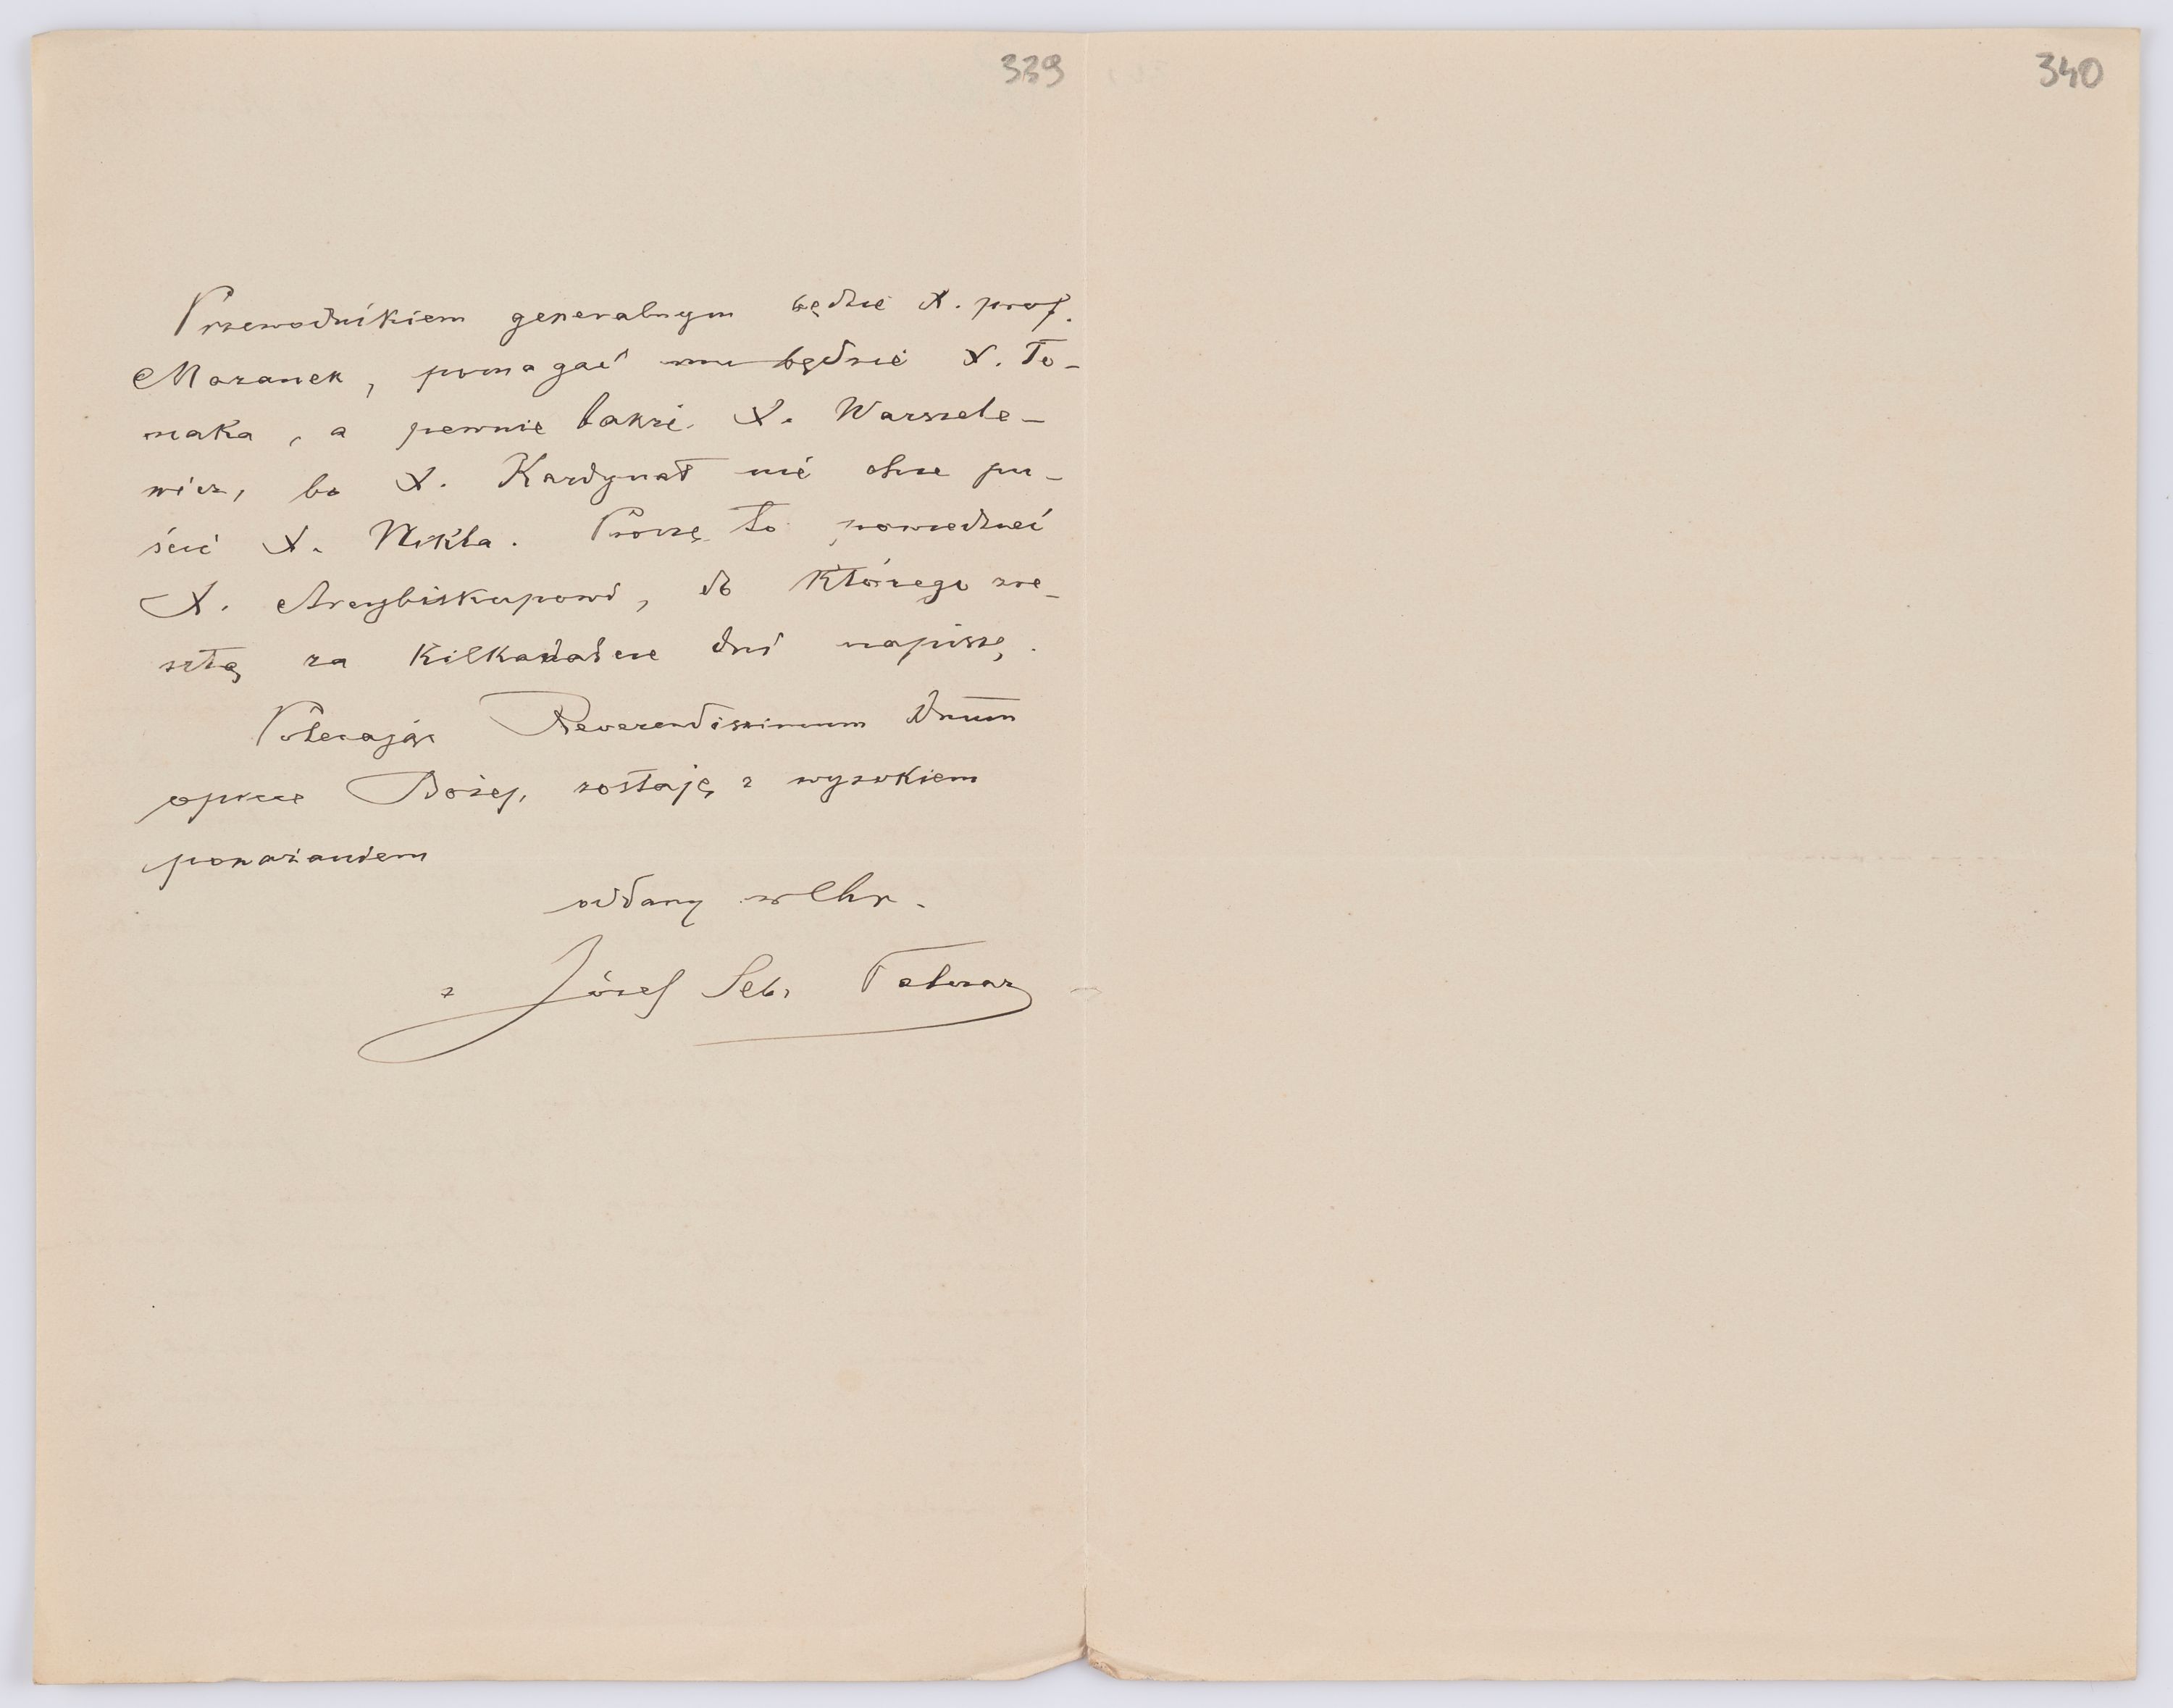 339
Przewodnikiem generalnym będzie X. prof.
Mazanek, pomagać mu będzie X. To-
maka, a pewnie także X. Warszele-
wicz, bo X. Kardynał nie chce pu-
ścić X. Nikla. Proszę to powiedzieć
X. Arcybiskupowi, do którego zre-
sztą za kilkanaście dni napiszę.
Polecając Reverendissimum Dnum
opiece Bożej, zostaję z wysokiem
poważaniem
oddany w Chr.
Józef Seb. Pelczar
340